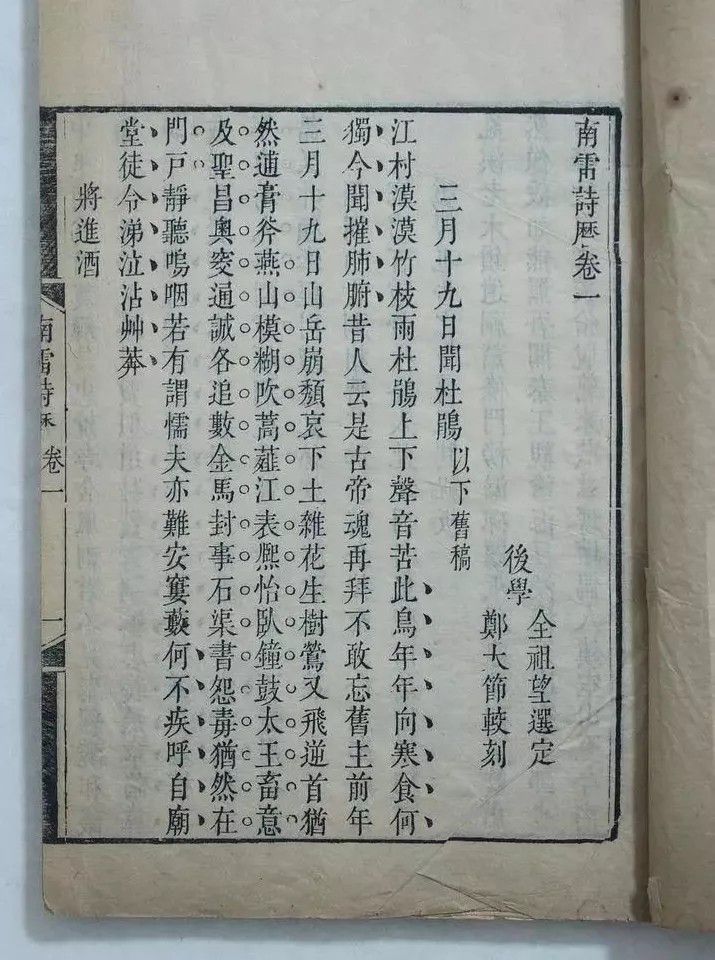 南雷詩厤卷一
後學
全祖望選定
鄭大節較刻
三月十九日聞杜鵑 以下舊稿
江村漠漠竹枝雨杜鵑上下聲音苦此鳥年年向寒食何
獨今聞摧肺腑昔人云是古帝魂再拜不敢忘舊主前年
三月十九日山岳崩頹哀下土雜花生樹鶯又飛逆首猶
然逋膏斧燕山模糊吹蒿薤江表熈怡臥鐘鼓太王畜意
及聖昌奧窔通誠各追數金馬封事石渠書怨毒猶然在
門戸靜聽嗚咽若有謂懦夫亦難安寠藪何不疾呼自廟
堂徒令涕泣沾艸莽
將進酒
南雷詩厤 卷一 一